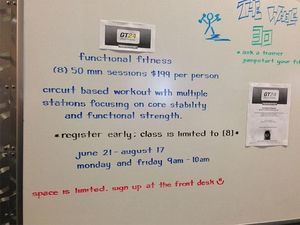 GT24
functional fitness
(8) 50 min sessions $199 per person
circuit based workout with multiple
stations focusing on core stability
and functional strength.
*register early; class is limited to (8)*
june 21 - august 17
monday and friday 9am - 10am
space is limited. sign up at the front desk
THE
30
*ask a trainer
jumpstart your
GT24